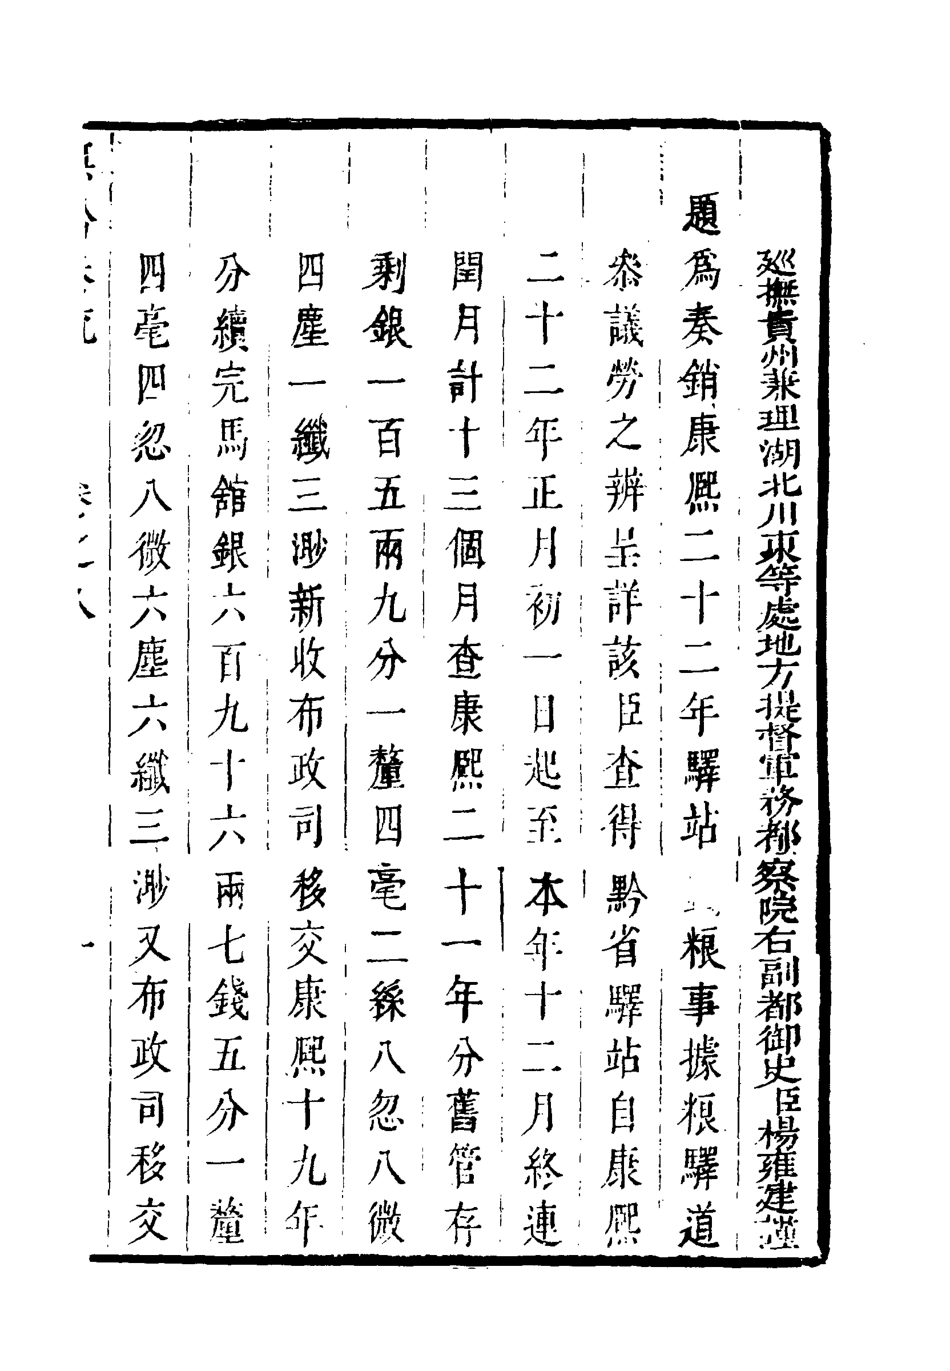 廵撫貴州兼理湖北川東等處地方提督軍務都察院右副都御史臣楊雍建謹
題爲奏銷康熙二十二年驛站 粮事據粮驛道
叅議勞之辨呈詳該臣查得黔省驛站自康熙
二十二年正月初一日起至本年十二月終連
閏月計十三個月查康熙二十一年分舊管存
剩銀一百五兩九分一釐四毫二絲八忽八微
四塵一纖三渺新收布政司移交康熙十九年
分續完馬舘銀六百九十六兩七錢五分一釐
四毫四忽八微六塵六纖三渺又布政司移交